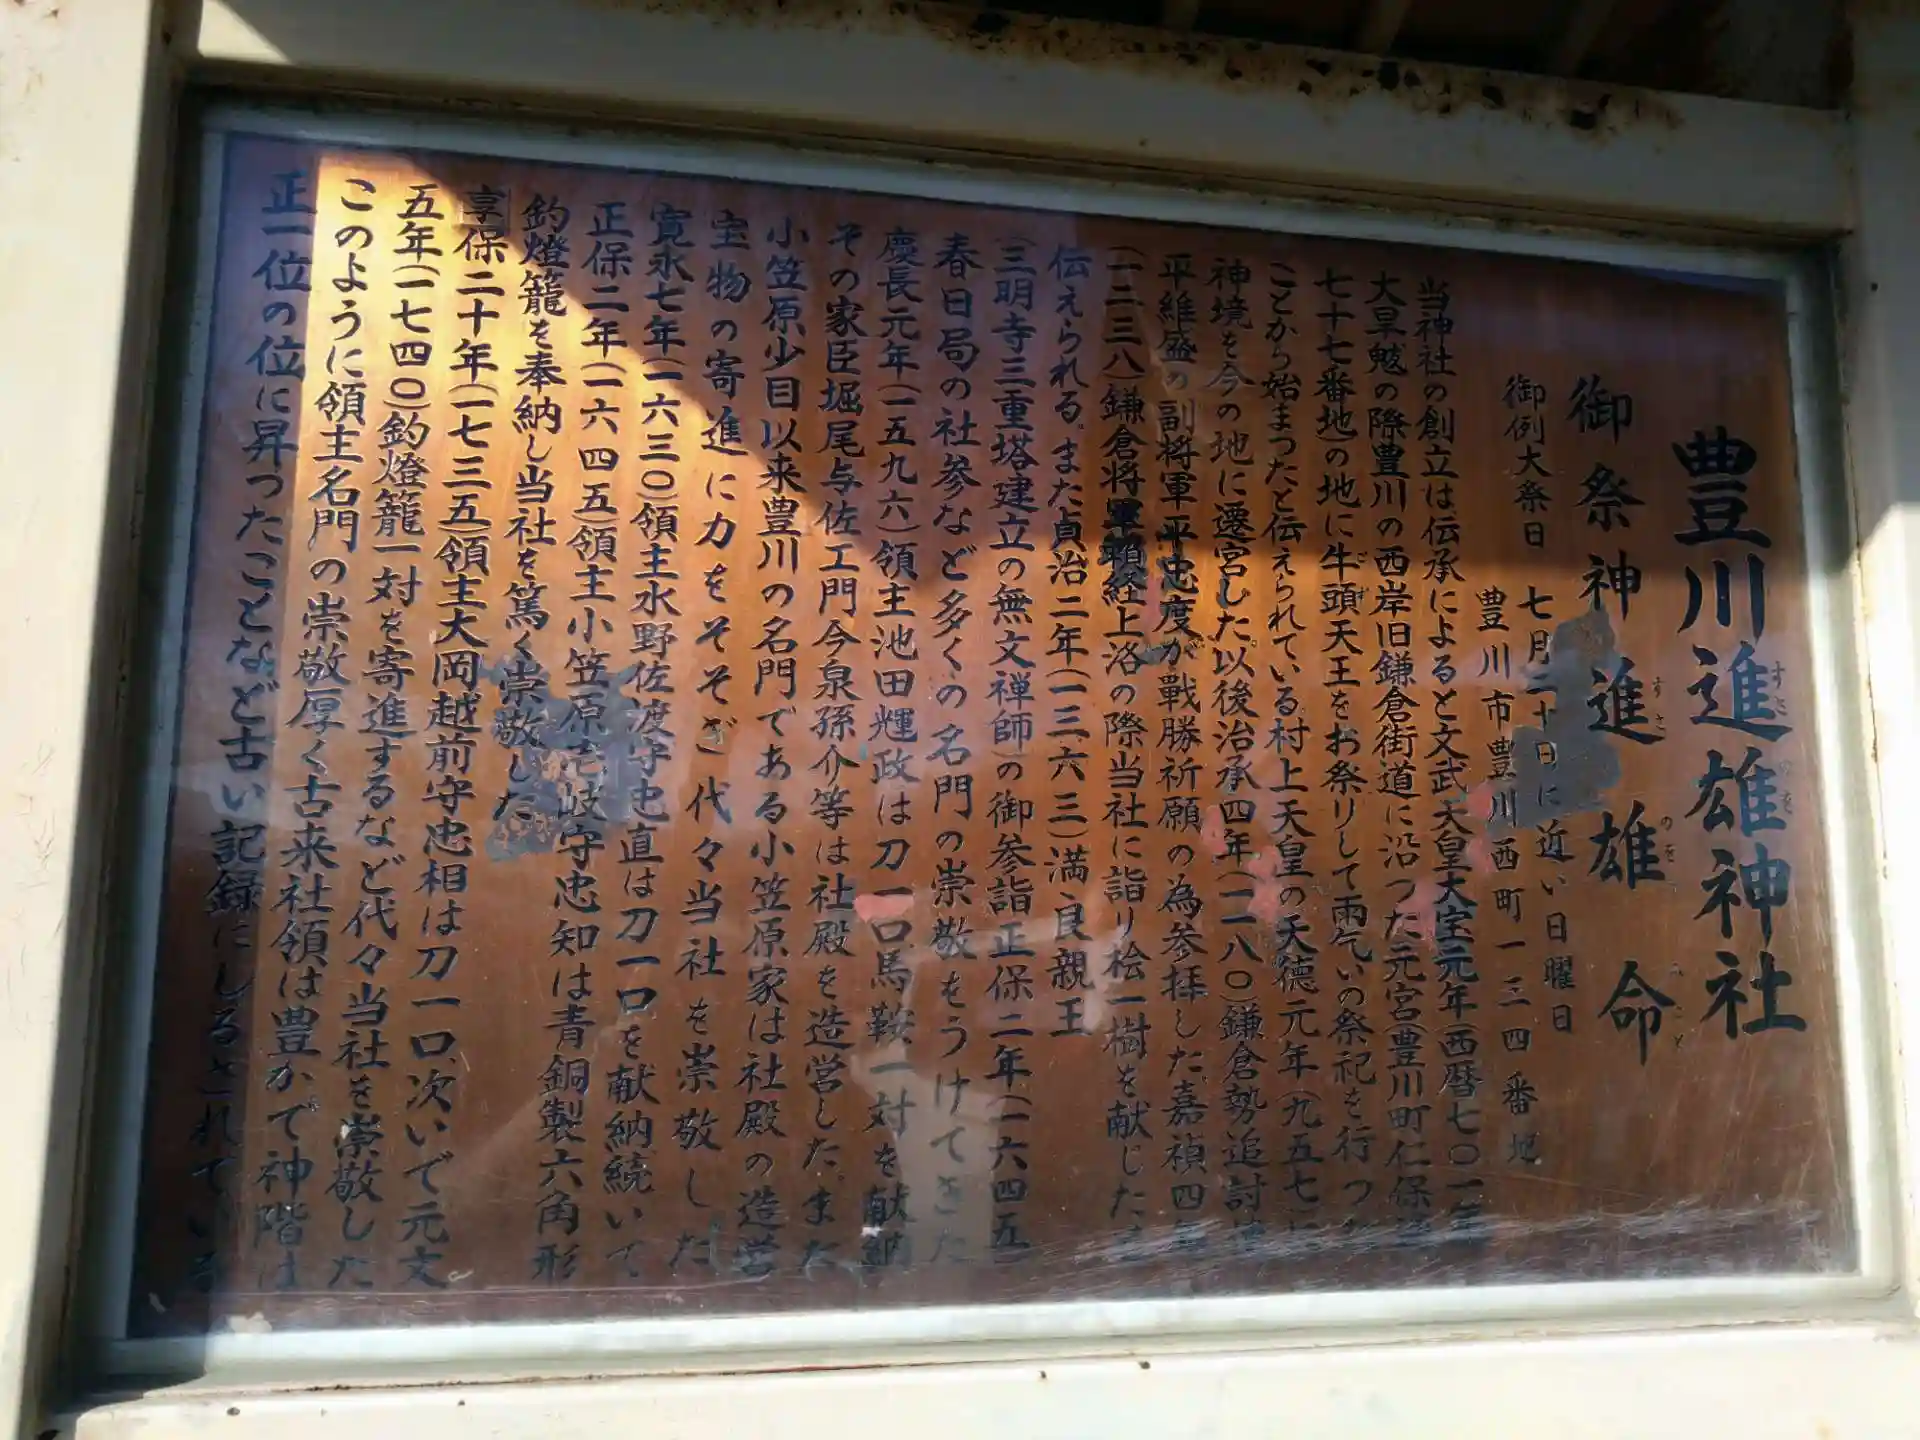 豊川進雄神社
御祭神 進雄命
御例大祭日 七月二十日に近い日曜日
豊川市豊川西町一三四番地
当神社の創立は伝承によると文武天皇大宝元年(西暦七〇一年
大旱魃の際豊川の西岸旧鎌倉街道に沿つた元宮(豊川町仁保
七十七番地)の地に牛頭天王をお祭りして雨乞いの祭祀を行つ
ことから始まつたと伝えられている村上天皇の天徳元年(九五七
神境を今の地に遷宮した。以後治承四年(一一八〇)鎌倉勢追討
平維盛の副将軍平忠度が戰勝祈願の為参拝した嘉禎四年
(一二三八)鎌倉将軍頼経上洛の際当社に詣り桧一樹を献じた
伝えられる。また貞治二年(一三六三)満良親王
(三明寺三重塔建立の無文禅師の御参詣正保二年(一六四五
春日局の社参など多くの名門の崇敬をうけてきた
慶長元年(一五九六)領主池田輝政は刀一口馬鞍一対を献納
その家臣堀尾与佐エ門今泉孫介等は社殿を造営した。また
小笠原少目以来豊川の名門である小笠原家は社殿の造営
宝物の寄進に力をそそぎ代々当社を崇敬した
寛永七年(一六三〇)領主水野佐渡守忠直は刀一口を献納続いて
正保二年(一六四五)領主小笠原壱岐守忠知は青銅製六角形
釣燈籠を奉納し当社を篤く崇敬した
享保二十年(一七三五)領主大岡越前守忠相は刀一口、次いで元文
五年(一七四〇)釣燈籠一対を寄進するなど代々当社を崇敬した
このように領主名門の崇敬厚く古来社領は豊かで神階は
正一位の位に昇つたことなど古い記録にしるされている